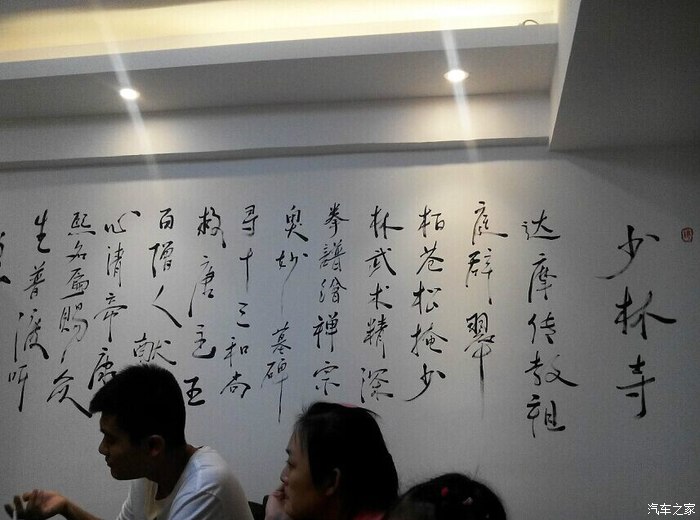 少林寺
达摩传教祖
庭辟翠
柏苍松掩少
林武术精深
拳譜繪禅宗
奥妙墓碑
尋十三和尚
救唐王五
百僧人献
心清帝康
熙名匾赐众
生普渡呵
汽车之家